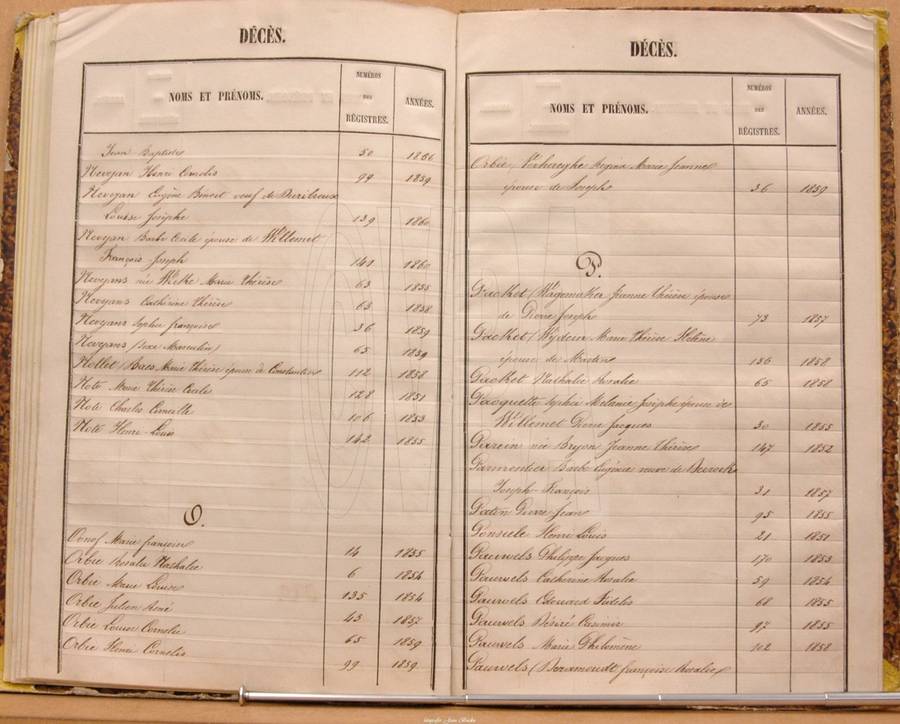 DÉCÈS.
NOMS ET PRÉNOMS. NUMÉROS DES RÉGISTRES. ANNÉES.
Jean Baptiste 50 1856
Neveyan Henri Cornelis 99 1859
Neveyan Eugène Benoit veuf de
Louise Josephe 139 1860
Neveyan Barbe Cecile épouse de Willemet
François Joseph 141 1860
Neveyans née Marie Thérèse 63 1855
Neveyans Catherine Thérèse 63 1858
Neveyans Sophie françoise 36 1859
Neveyans (sexe Masculin) 65 1859
Nollet (Baes Marie Thérèse épouse de Constantin) 112 1858
Noté Marie Thérèse Cecile 128 1851
Noté Charles Camille 106 1853
Noté Henri Louis 142 1855
O.
Marie françoise 14 1855
Orbie Rosalie Nathalie 6 1854
Orbie Marie Louise 135 1854
Orbie Julien René 43 1857
Orbie Louise Cornelie 65 1859
Orbie Henri Cornelis 99 1859
DÉCÈS.
NOMS ET PRÉNOMS. NUMÉROS DES RÉGISTRES. ANNÉES.
Orbie, Regina Marie Jeanne
épouse de Joseph 36 1859
P.
Packet (Wagemaker Jeanne Thérèse épouse
de Pierre Joseph 73 1857
Packet (Marie Thérèse Helène
épouse de Martin 136 1858
Packet Nathalie Rosalie 65 1858
Pacquette Sophie Melanie Josephe épouse de
Willemet Pierre Jacques 30 1855
née Jeanne Thérèse 147 1852
Parmentier Barbe Eugénie veuve de
Joseph François 31 1857
Pierre Jean 95 1855
Henri Louis 21 1851
Pauwels Philippe Jacques 170 1853
Pauwels Catherine Rosalie 59 1854
Pauwels Edouard Fidelis 68 1855
Pauwels Désiré Casimir 97 1855
Pauwels Marie Philomène 102 1858
Pauwels françoise Rosalie)